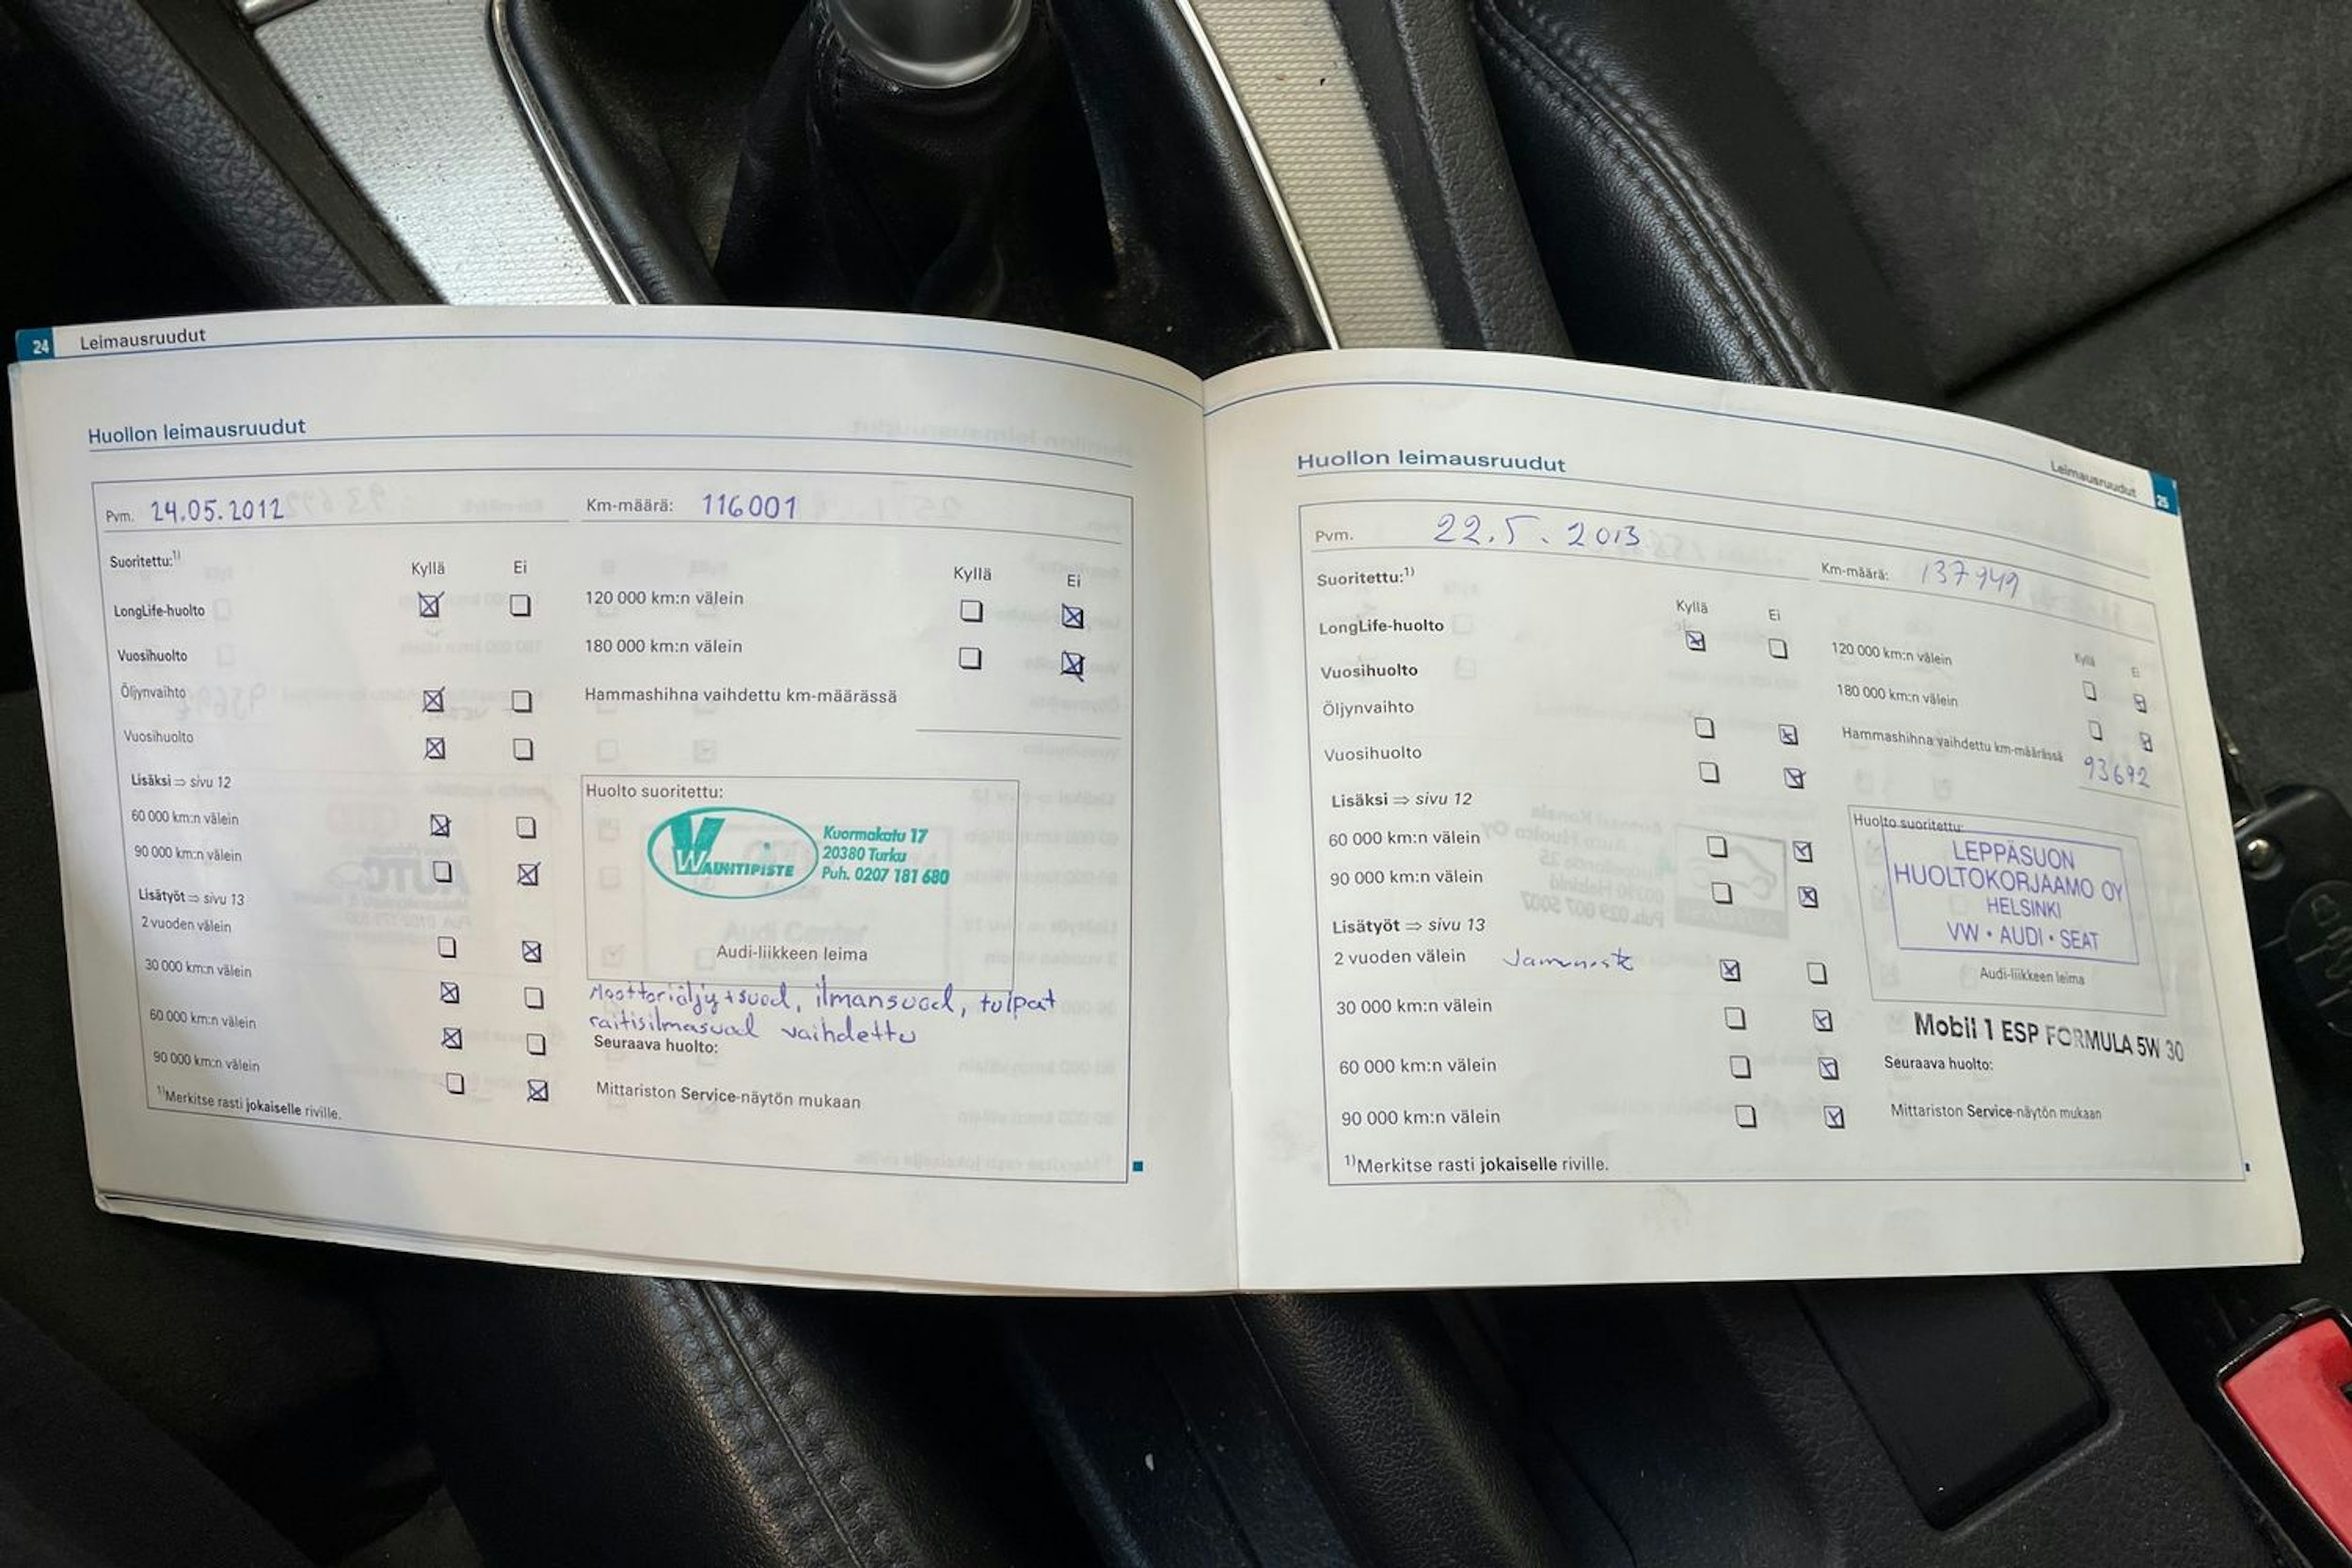 24 Leimausruudut
Huollon leimausruudut
Pvm. 24.05.2012 Km-määrä: 116001
Suoritettu:1)
Kyllä Ei
LongLife-huolto
Vuosihuolto
Öljynvaihto
Vuosihuolto
Lisäksi ⇒ sivu 12
60 000 km:n välein
90 000 km:n välein
Lisätyöt ⇒ sivu 13
2 vuoden välein
30 000 km:n välein
60 000 km:n välein
90 000 km:n välein
1)Merkitse rasti jokaiselle riville.
Kyllä Ei
120 000 km:n välein
180 000 km:n välein
Hammashihna vaihdettu km-määrässä
Huolto suoritettu:
WAIHTIPISTE
Kuormakatu 17
20380 Turku
Puh. 0207 181 680
Audi-liikkeen leima
Moottoriöljy+suod, ilmansuod, tulpat
raitisilmasuod vaihdettu
Seuraava huolto:
Mittariston Service-näytön mukaan
Leimausruudut 25
Huollon leimausruudut
Pvm. 22.5.2013 Km-määrä: 137949
Suoritettu:1)
Kyllä Ei
LongLife-huolto
Vuosihuolto
Öljynvaihto
Vuosihuolto
Lisäksi ⇒ sivu 12
60 000 km:n välein
90 000 km:n välein
Lisätyöt ⇒ sivu 13
2 vuoden välein
30 000 km:n välein
60 000 km:n välein
90 000 km:n välein
1)Merkitse rasti jokaiselle riville.
Kyllä Ei
120 000 km:n välein
180 000 km:n välein
Hammashihna vaihdettu km-määrässä
93692
Huolto suoritettu:
LEPPÄSUON
HUOLTOKORJAAMO OY
HELSINKI
VW • AUDI • SEAT
Audi-liikkeen leima
Mobil 1 ESP FORMULA 5W 30
Seuraava huolto:
Mittariston Service-näytön mukaan